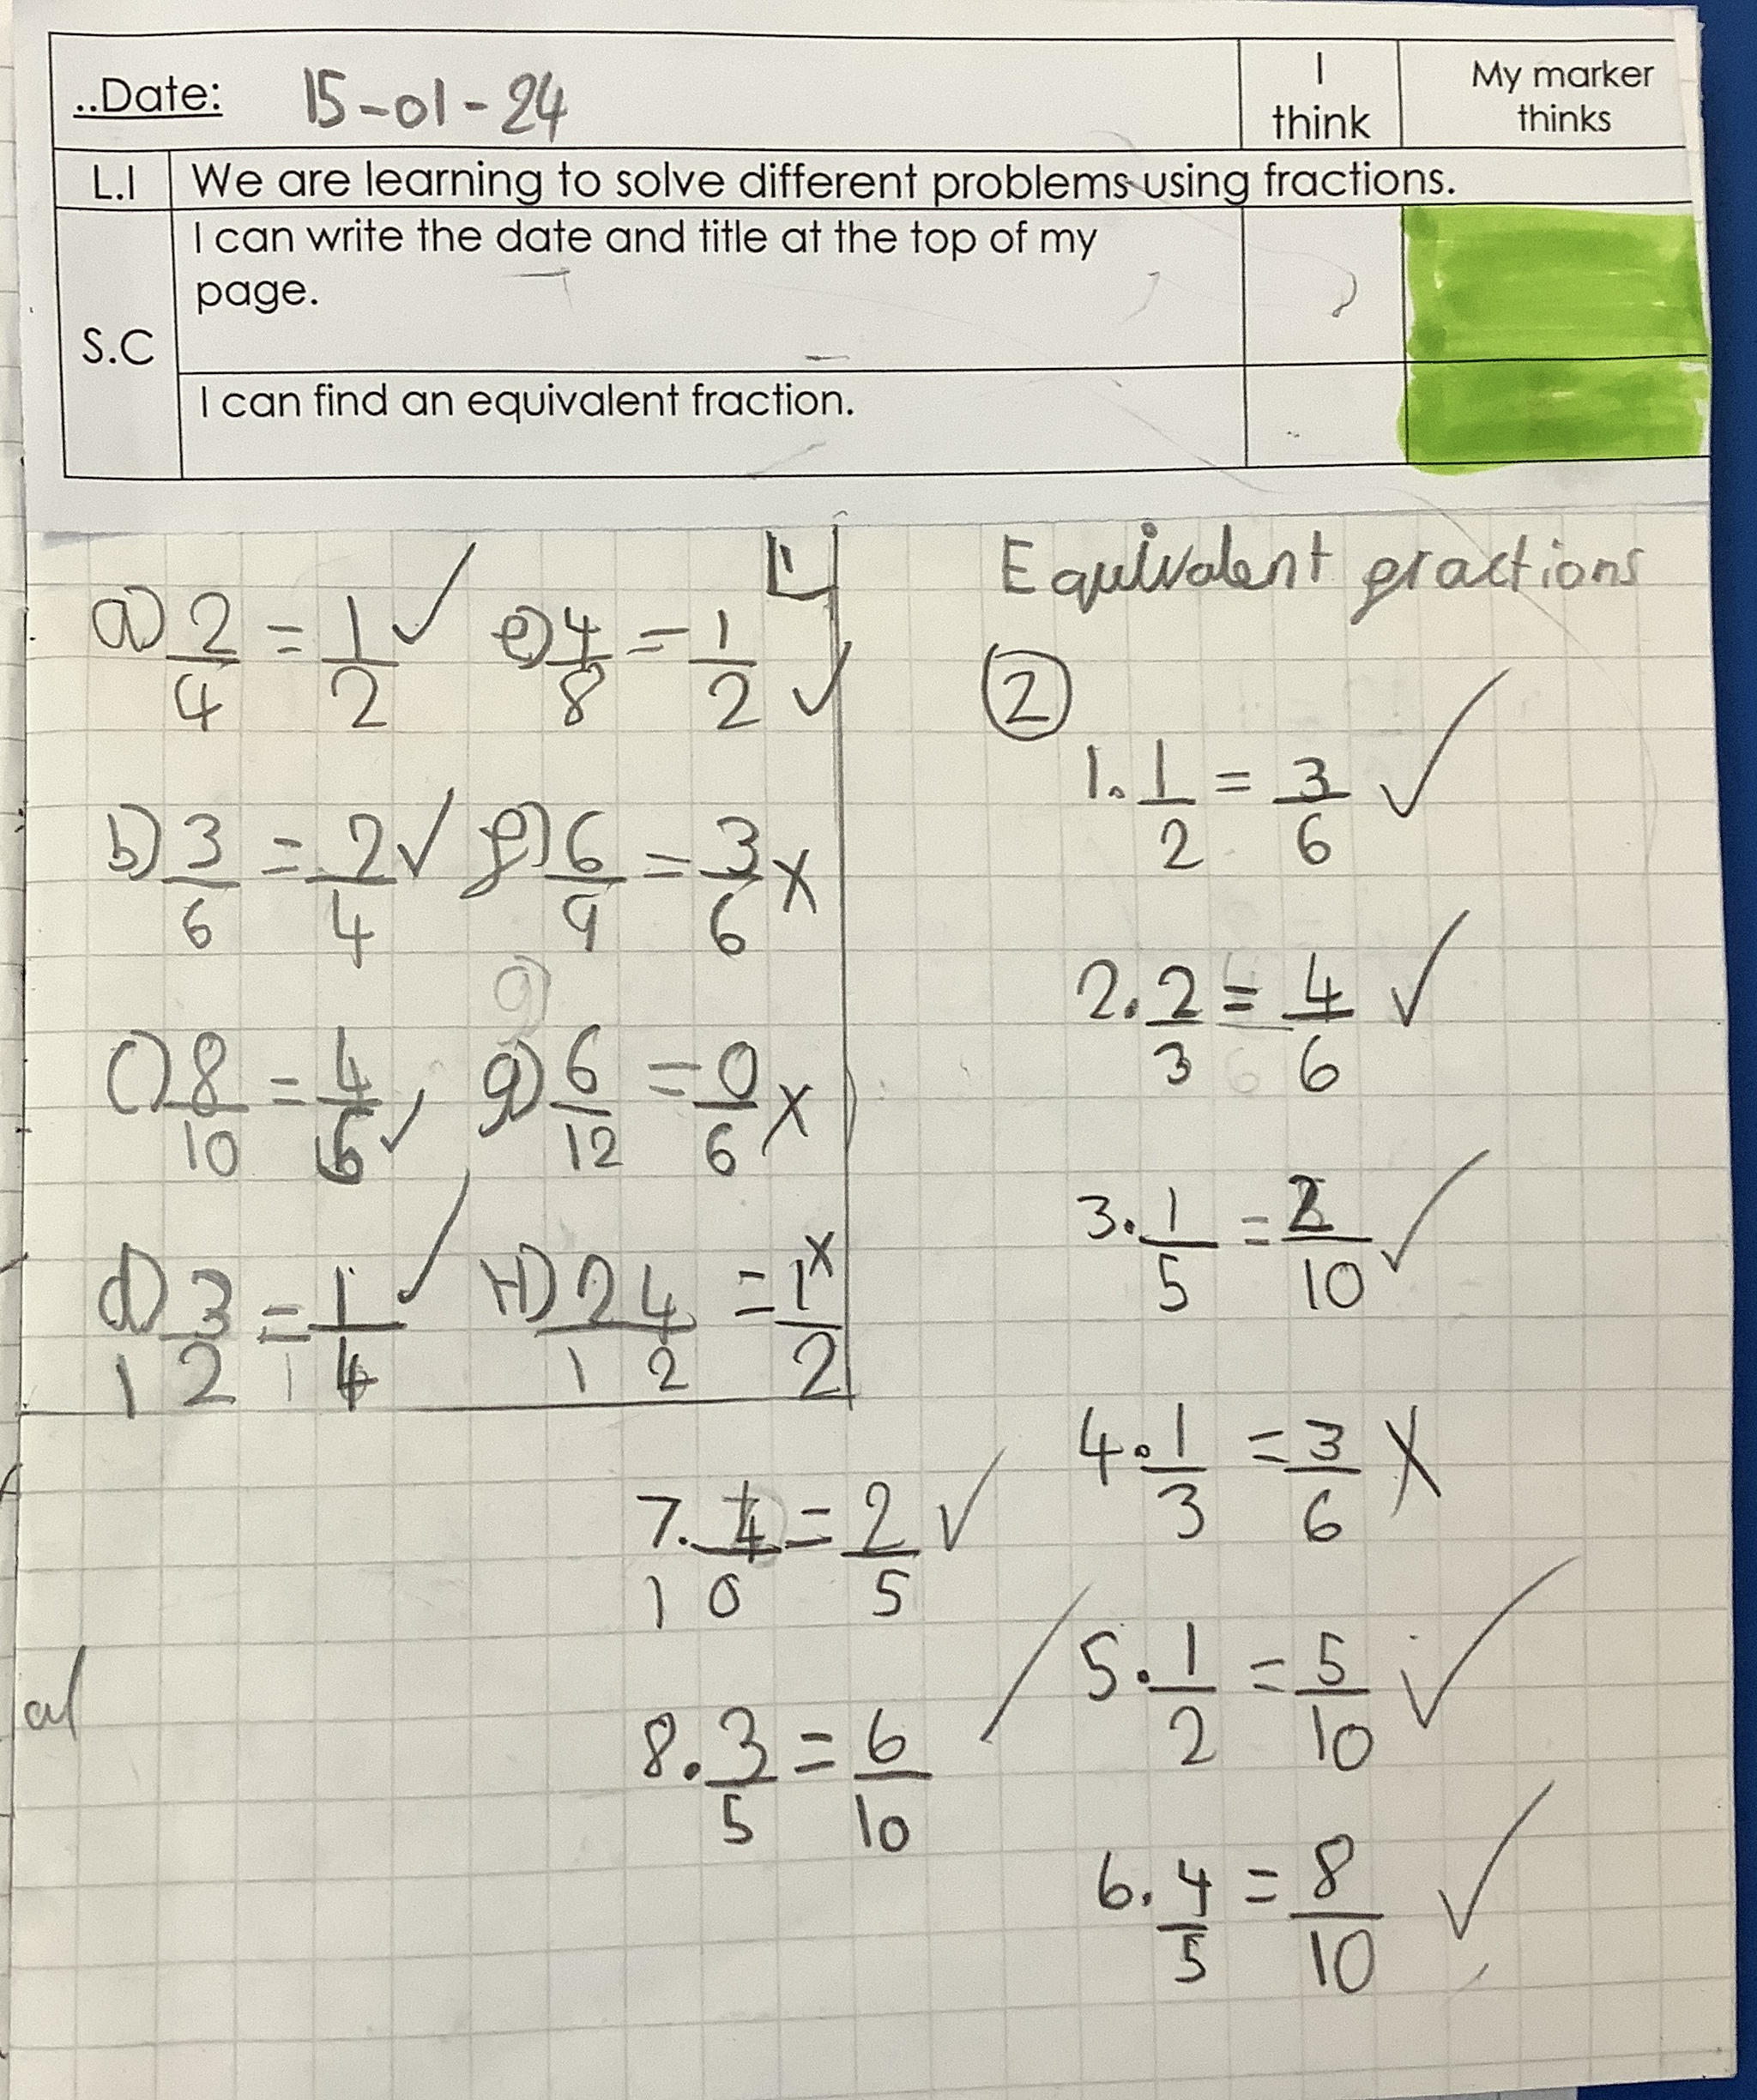 ..Date: 15-01-24
I think
My marker thinks
L.I We are learning to solve different problems using fractions.
S.C
I can write the date and title at the top of my
page.
I can find an equivalent fraction.
Equivalent fractions
a) 2/4 = 1/2 ✓ e) 4/8 = 1/2 ✓
b) 3/6 = 2/4 ✓ f) 6/9 = 3/6 x
g)
c) 8/10 = 4/5 ✓ g) 6/12 = 0/6 x
d) 3/12 = 1/4 ✓ H) 24/12 = 1/2 x
2
1. 1/2 = 3/6 ✓
2. 2/3 = 4/6 ✓
3. 1/5 = 2/10 ✓
4. 1/3 = 3/6 X
5. 1/2 = 5/10 ✓
6. 4/5 = 8/10 ✓
7. 4/10 = 2/5 ✓
8. 3/5 = 6/10
al